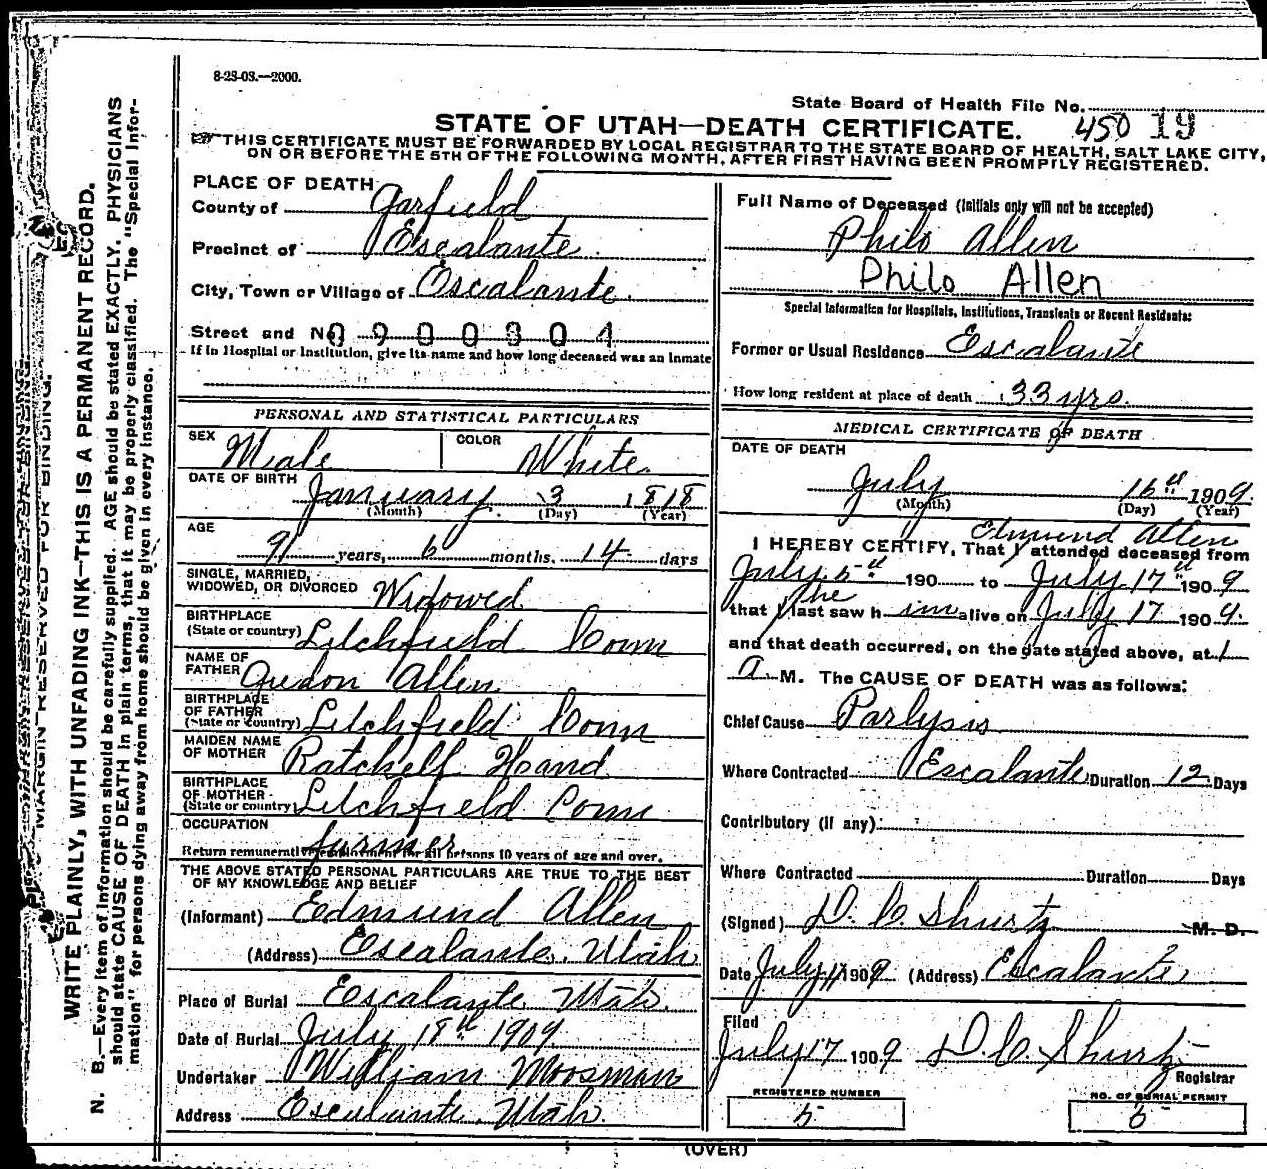 8-23-03.—2000.
State Board of Health File No. 450 19
STATE OF UTAH—DEATH CERTIFICATE.
THIS CERTIFICATE MUST BE FORWARDED BY LOCAL REGISTRAR TO THE STATE BOARD OF HEALTH, SALT LAKE CITY,
ON OR BEFORE THE 5TH OF THE FOLLOWING MONTH, AFTER FIRST HAVING BEEN PROMPTLY REGISTERED.
PLACE OF DEATH
County of Garfield
Precinct of Escalante
City, Town or Village of Escalante.
Street and No. 0900304
If in Hospital or Institution, give its name and how long deceased was an inmate
PERSONAL AND STATISTICAL PARTICULARS
SEX Male COLOR White
DATE OF BIRTH January 3 1818
(Month) (Day) (Year)
AGE 91 years, 6 months, 14 days
SINGLE, MARRIED,
WIDOWED, OR DIVORCED Widowed
BIRTHPLACE
(State or country) Litchfield Conn
NAME OF
FATHER Guedon Allen
BIRTHPLACE
OF FATHER
(State or country) Litchfield Conn
MAIDEN NAME
OF MOTHER Ratchell Hand
BIRTHPLACE
OF MOTHER
(State or country) Litchfield Conn
OCCUPATION farmer
Return remunerative employment for all persons 10 years of age and over.
THE ABOVE STATED PERSONAL PARTICULARS ARE TRUE TO THE BEST
OF MY KNOWLEDGE AND BELIEF
(Informant) Edmund Allen
(Address) Escalante. Utah
Place of Burial Escalante Utah.
Date of Burial July 18th 1909.
Undertaker William Moosman
Address Escalante. Utah.
Full Name of Deceased (Initials only will not be accepted)
Philo Allen
Philo Allen
Special Information for Hospitals, Institutions, Transients or Recent Residents:
Former or Usual Residence Escalante
How long resident at place of death 33 yrs.
MEDICAL CERTIFICATE OF DEATH
DATE OF DEATH
July 16th 1909.
(Month) (Day) (Year)
Edmund Allen
I HEREBY CERTIFY, That I attended deceased from
July 5th 190 to July 17th 1909
he
that I last saw him alive on July 17 1909.
and that death occurred, on the date stated above, at 1
a M. The CAUSE OF DEATH was as follows:
Chief Cause Parlysis
Where Contracted Escalante Duration 12 Days
Contributory (if any)
Where Contracted Duration Days
(Signed) D. C. Shurtz M. D.
Date July 17 1909 (Address) Escalante
Filed
July 17 1909 D C. Shurtz
Registrar
REGISTERED NUMBER
5
NO. OF BURIAL PERMIT
5
(OVER)
MARGIN RESERVED FOR BINDING.
WRITE PLAINLY, WITH UNFADING INK—THIS IS A PERMANENT RECORD.
N. B.—Every item of information should be carefully supplied. AGE should be stated EXACTLY. PHYSICIANS
should state CAUSE OF DEATH in plain terms, that it may be properly classified. The "Special Infor-
mation" for persons dying away from home should be given in every instance.